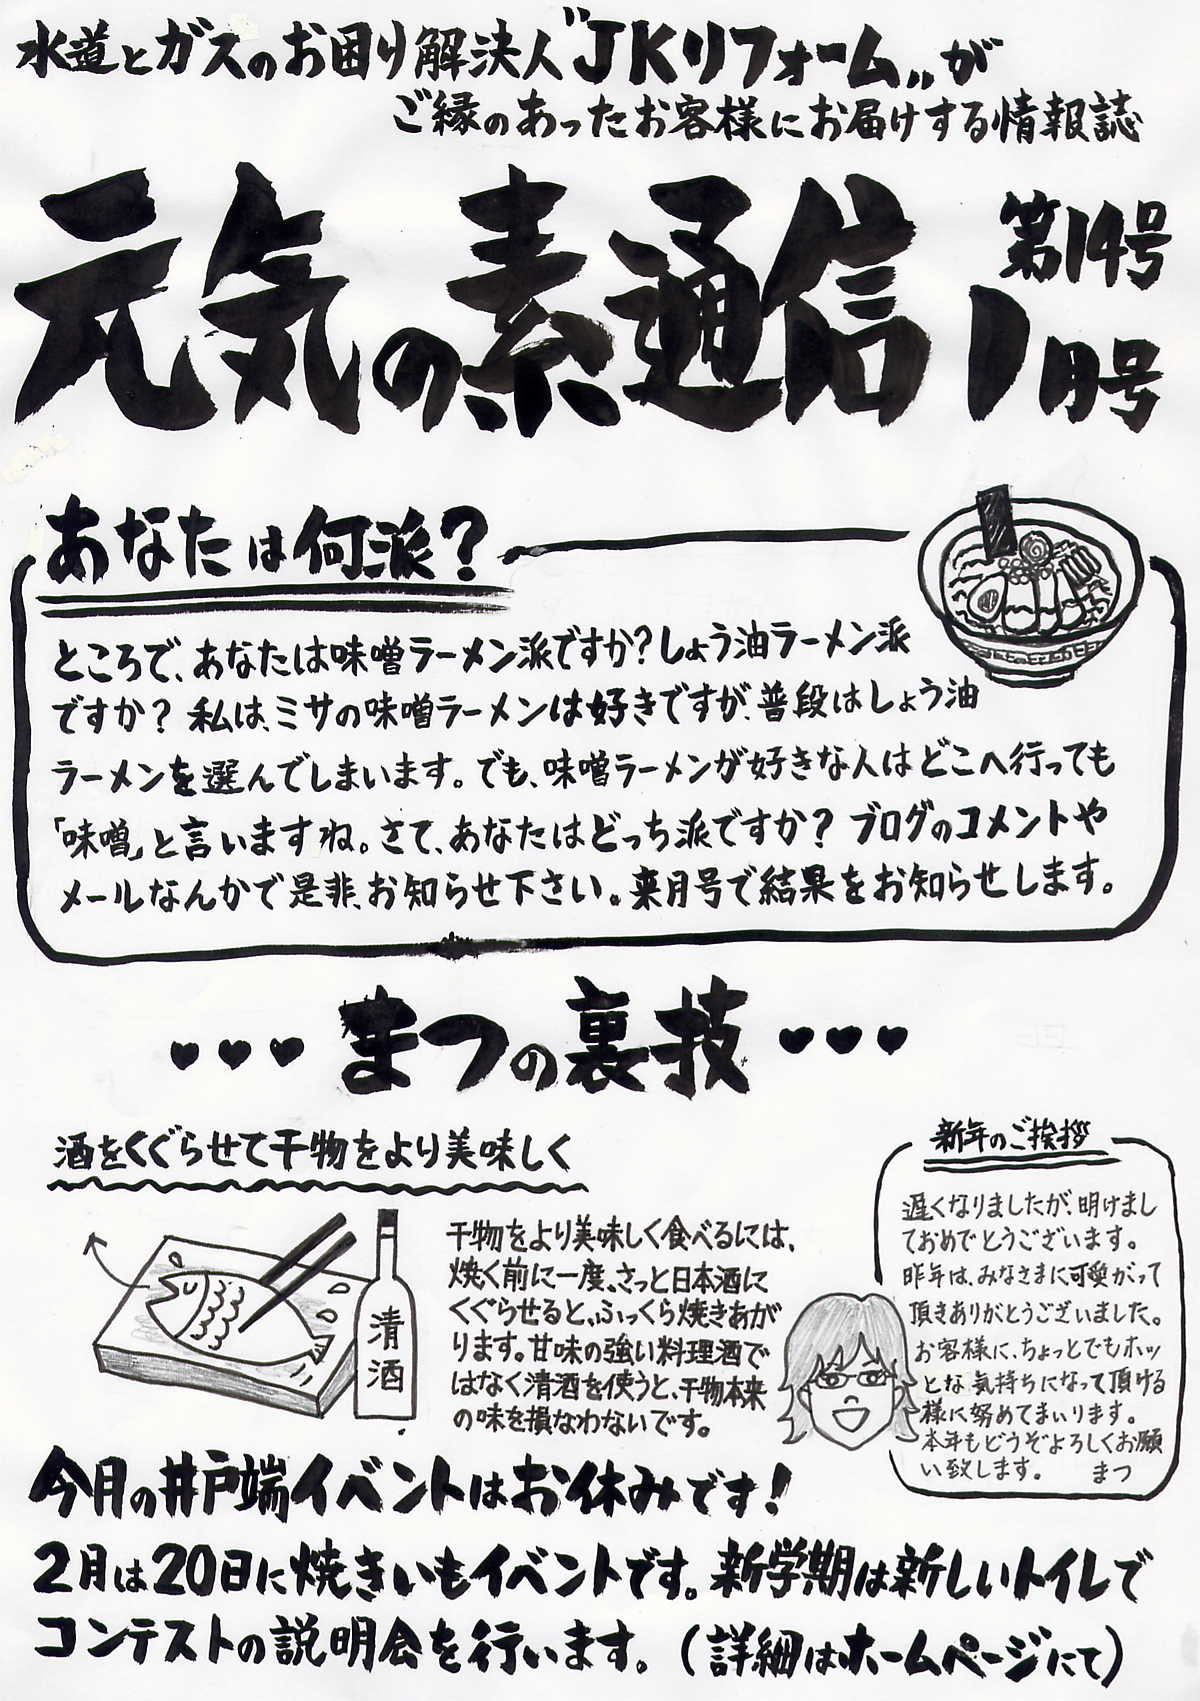 水道とガスのお困り解決人"JKリフォーム"が
ご縁のあったお客様にお届けする情報誌
元気の素通信
第14号
1月号
あなたは何派?
ところで、あなたは味噌ラーメン派ですか?しょう油ラーメン派
ですか? 私は、ミサの味噌ラーメンは好きですが、普段はしょう油
ラーメンを選んでしまいます。でも、味噌ラーメンが好きな人はどこへ行っても
「味噌」と言いますね。さて、あなたはどっち派ですか? ブログのコメントや
メールなんかで是非、お知らせ下さい。来月号で結果をお知らせします。
まつの裏技
酒をくぐらせて干物をより美味しく
清酒
干物をより美味しく食べるには、
焼く前に一度、さっと日本酒に
くぐらせると、ふっくら焼きあが
ります。甘味の強い料理酒で
はなく清酒を使うと、干物本来
の味を損なわないです。
新年のご挨拶
遅くなりましたが、明けまし
ておめでとうございます。
昨年は、みなさまに可愛がって
頂きありがとうございました。
お客様に、ちょっとでもホッ
とな気持ちになって頂ける
様に努めてまいります。
本年もどうぞよろしくお願
い致します。 まつ
今月の井戸端イベントはお休みです!
2月は20日に焼きいもイベントです。新学期は新しいトイレで
コンテストの説明会を行います。(詳細はホームページにて)